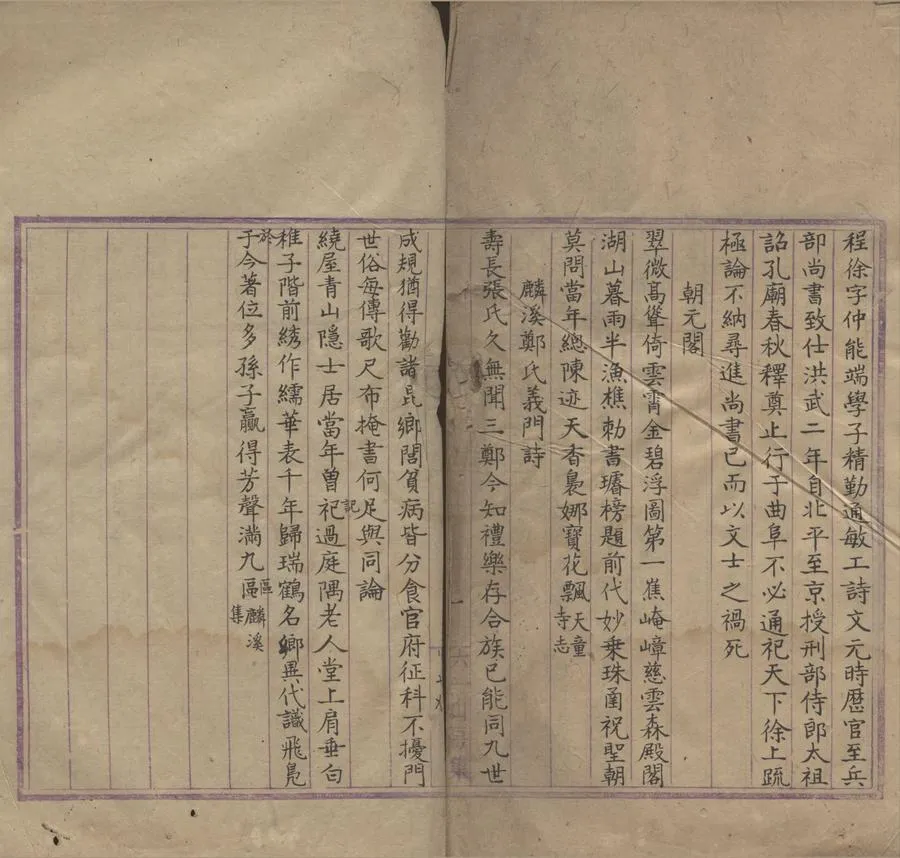 程徐字仲能端學子精勤通敏工詩文元時歷官至兵
部尚書致仕洪武二年自北平至京授刑部侍郎太祖
詔孔廟春秋釋奠止行于曲阜不必通祀天下徐上疏
極論不納尋進尚書已而以文士之禍死
朝元閣
翠微高聳倚雲霄金碧浮圖第一蕉崦嶂慈雲森殿閣
湖山暮雨半漁樵勅書璿榜題前代妙乗珠函祝聖朝
莫問當年總陳迹天香裊娜寶花飄天童寺志
麟溪鄭氏義門詩
壽長張氏久無聞三鄭今知禮樂存合族已能同九世
成規猶得勸諸昆鄉閭貧病皆分食官府征科不擾門
世俗每傳歌尺布掩書何足與同論
繞屋青山隱士居當年曾祀過庭隅老人堂上肩垂白
記
稚子階前綉作繻華表千年歸瑞鶴名鄉異代識飛鳧
於
于今著位多孫子贏得芳聲滿九區麟溪集
區